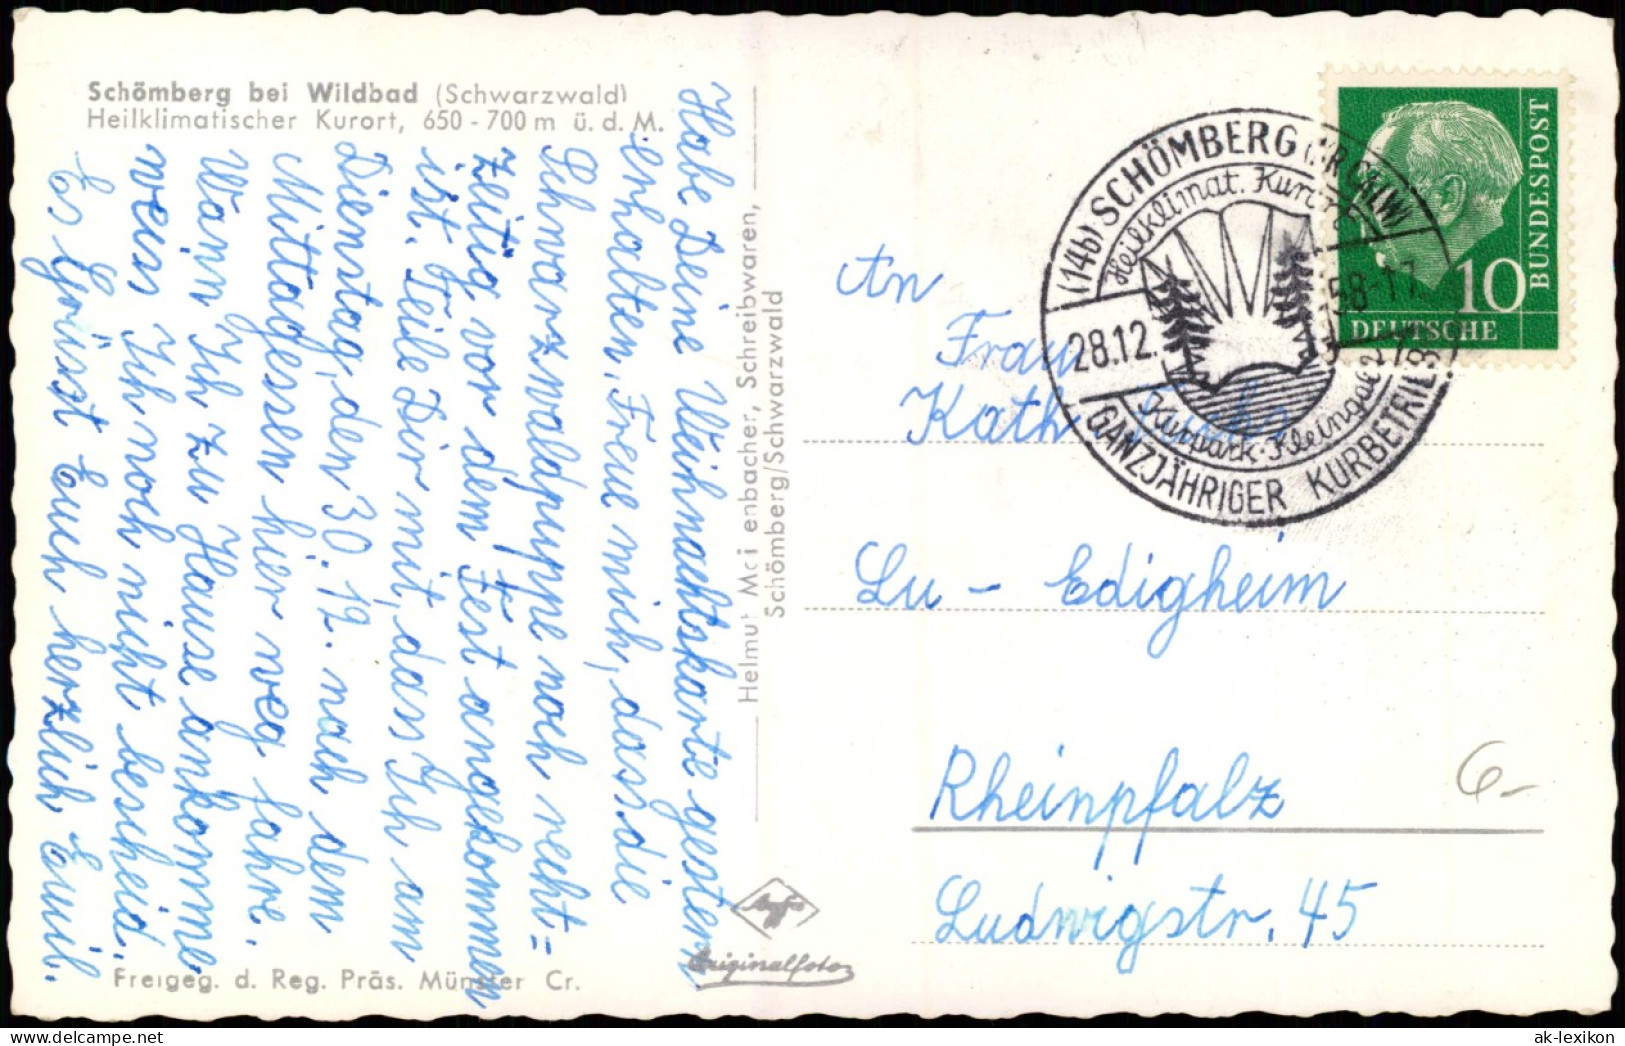 Schömberg bei Wildbad (Schwarzwald)
Heilklimatischer Kurort, 650 - 700 m ü. d. M.
Habe Deine Weihnachtskarte gestern
erhalten, Freue mich, dass die
Schwarzwaldpuppe noch recht=
zeitig vor dem Fest angekommen
ist. Teile Dir mit, dass Ich am
Dienstag, den 30.12. nach dem
Mittagessen hier weg fahre.
Wann Ich zu Hause ankomme
weiss Ich noch nicht bescheid.
Es Grüsst Euch herzlich Emil.
Freigeg. d. Reg. Präs. Münster Cr.
Helmut enbacher, Schreibwaren,
Schömberg/Schwarzwald
Agfa
Originalfoto
(14b) SCHÖMBERG (KR CALW)
Heilklimat. Kurort
28.12. 58-17
Kurpark
GANZJÄHRIGER KURBETRIEB
DEUTSCHE
BUNDESPOST
10
An
Frau
Kath
Lu - Edigheim
Rheinpfalz
Ludwigstr. 45
6-
ak-lexikon.com